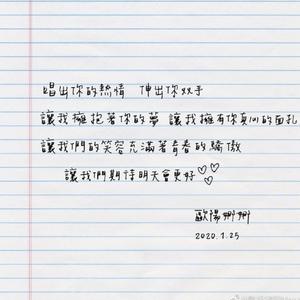 唱出你的熱情 伸出你双手
讓我擁抱著你的夢 讓我擁有你真心的面孔
讓我們的笑容充滿著青春的驕傲
讓我們期待明天會更好♡♡♡
歐陽娜娜
2020.1.25